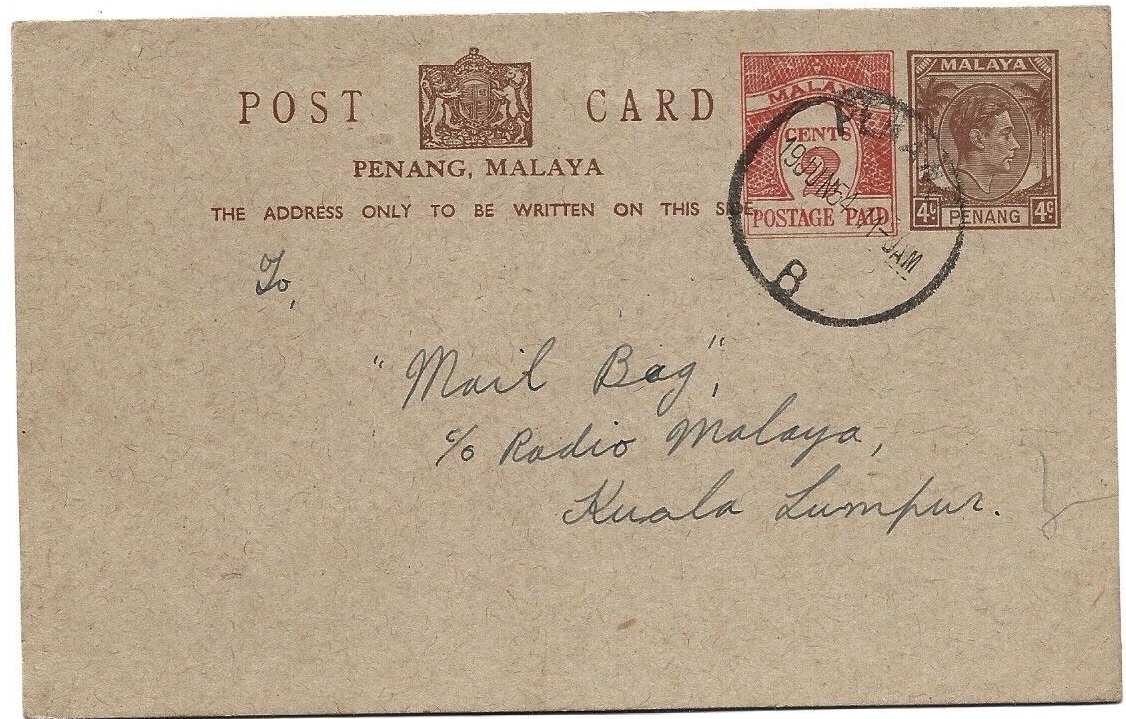 POST CARD
PENANG, MALAYA
THE ADDRESS ONLY TO BE WRITTEN ON THIS SIDE
MALAYA
CENTS
2
POSTAGE PAID
MALAYA
4c PENANG 4c
PENANG
19 JUN 54
AM
B
To,
"Mail Bag",
c/o Radio Malaya,
Kuala Lumpur.